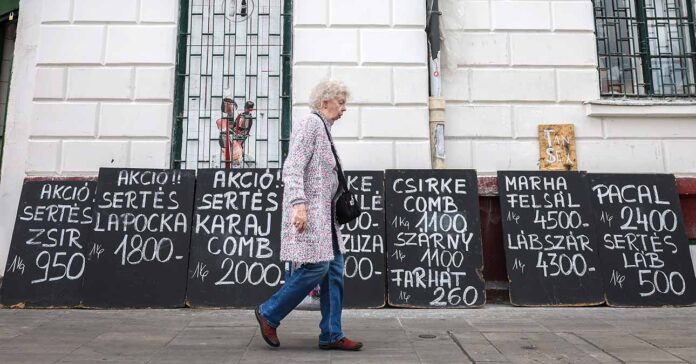 AKCIÓ
SERTÉS
ZSIR
1kg 950
AKCIÓ!!
SERTÉS
LAPOCKA
1kg 1800-
AKCIÓ!!
SERTÉS
KARAJ
COMB
1kg 2000-
CSIRKE
COMB
1kg 1100
SZÁRNY
1kg 1100
FARHÁT
1kg 260
MARHA
FELSÁL
1kg 4500-
LÁBSZÁR
1kg 4300-
PACAL
1kg 2400
SERTÉS
LÁB
1kg 500